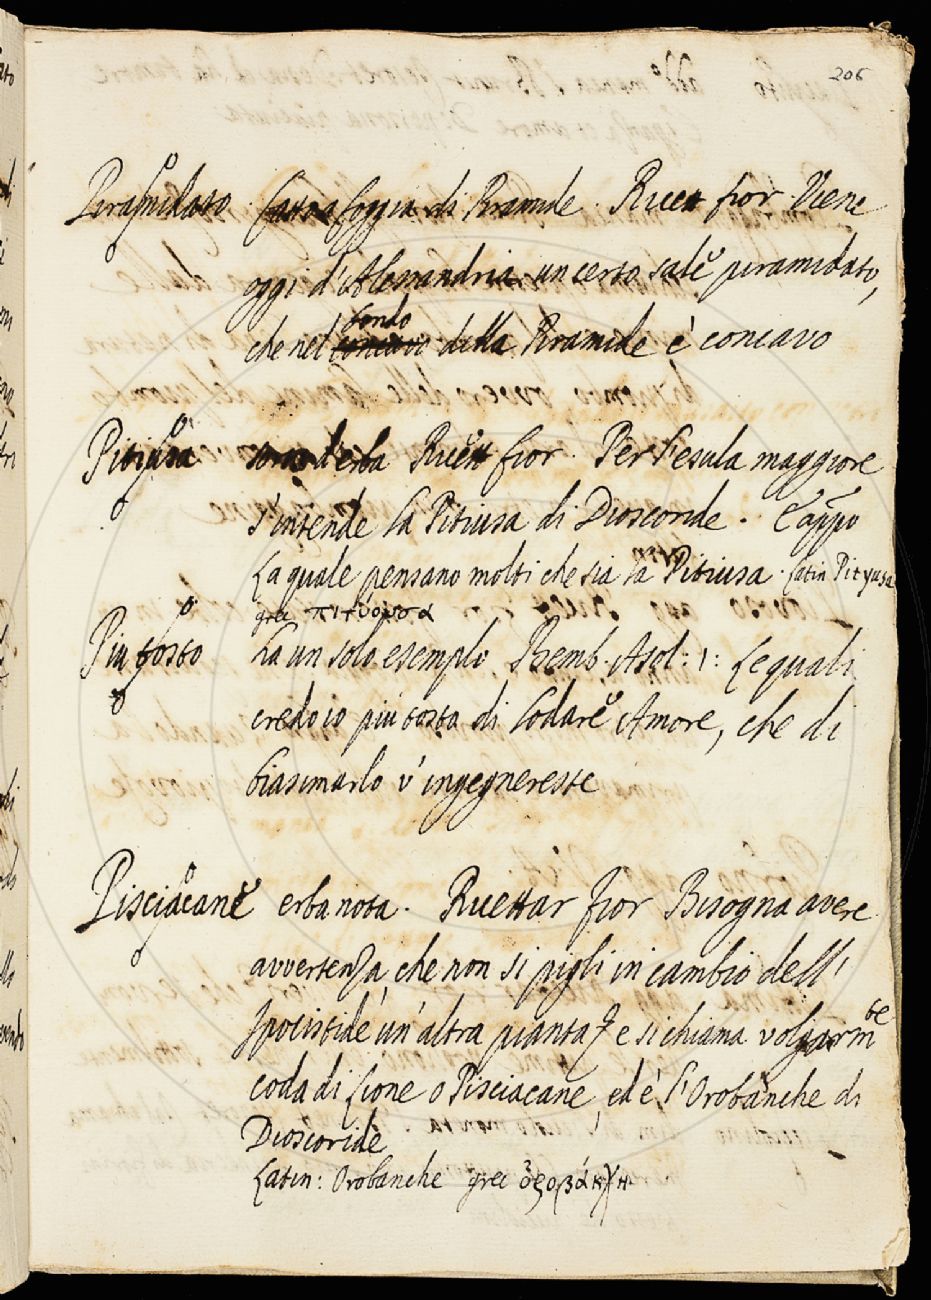 206
Piramidato fatto a foggia di Piramide. Ricett fior. Viene
oggi d'Alessandria un certo sale piramidato,
fondo
che nel concavo della Piramide è concavo
Pitiusa sorta d'erba Ricett fior. Per l'esula maggiore
s'intende la Pitiusa di Dioscoride. E appo
La quale pensano molti che sia la Pitiusa. Latin Pityusa
grec πιτύουσα
Piu tosto Ha un solo esemplo Bemb. Asol: 1: Le quali
credo io piu tosto di lodare Amore, che di
biasimarlo v'ingegnereste
Pisciacane erba nota. Ricettar fior Bisogna avere
avvertenza, che non si pigli in cambio dell'
Ipocistide un'altra pianta, e si chiama volgarmte
coda di Lione o Pisciacane, ed è l'Orobanche di
Dioscoride
Latin: Orobanche grec ὀροβάκχη